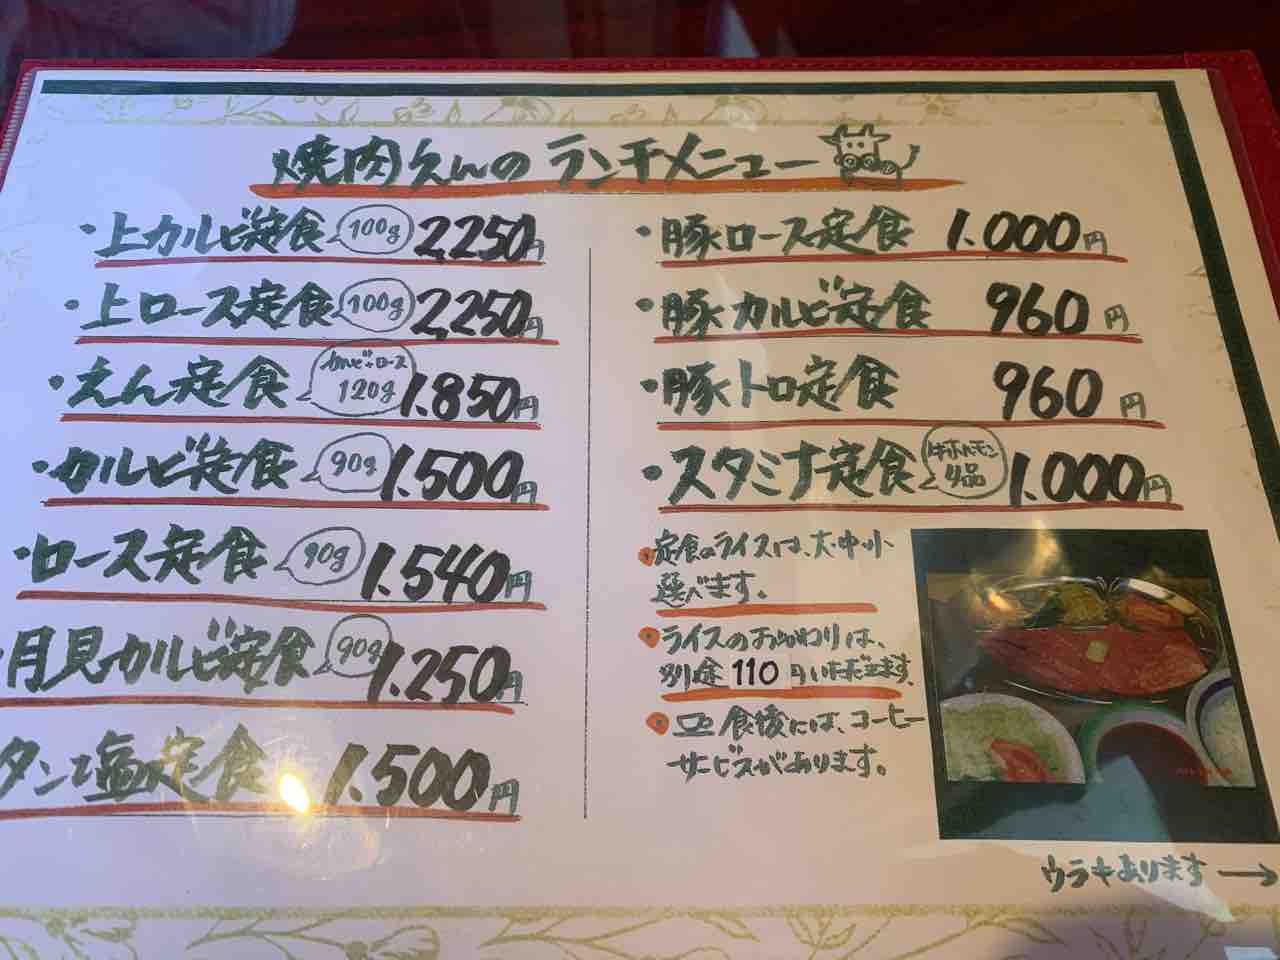 焼肉えんのランチメニュー
・上カルビ定食 100g 2,250円
・上ロース定食 100g 2,250円
・えん定食 カルビ+ロース 120g 1.850円
・カルビ定食 90g 1.500円
・ロース定食 90g 1.540円
・月見カルビ定食 90g 1.250円
タン塩定食 1.500円
・豚ロース定食 1.000円
・豚カルビ定食 960円
・豚トロ定食 960円
・スタミナ定食 牛ホルモン 4品 1.000円
定食のライスは、大中小
選べます。
ライスのおかわりは、
別途110円いただきます。
食後には、コーヒー
サービスがあります。
ウラもあります→